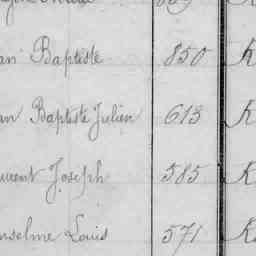 an Baptiste 850 K
an Baptiste Julien 613 K
urent Joseph 585 K
nselme Louis 571 K